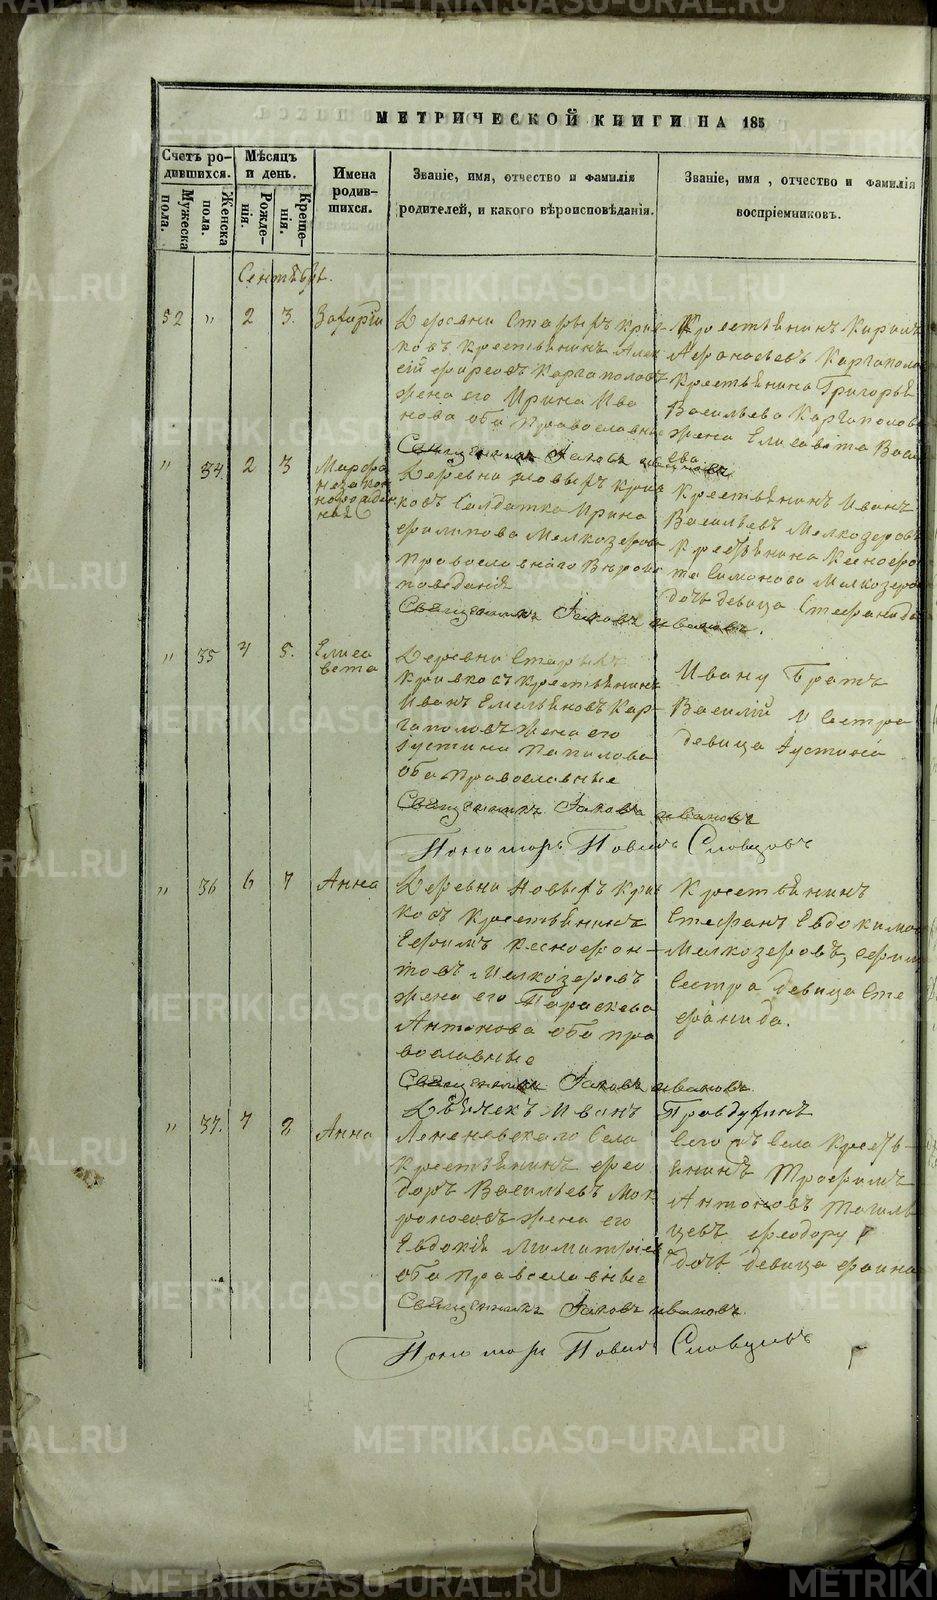 МЕТРИЧЕСКОЙ КНИГИ НА 185
Счетъ ро-
дившихся.
Мѣсяцъ
и день.
Имена
родив-
шихся.
Званіе, имя, отчество и фамилія
родителей, и какого вѣроисповѣданія.
Званіе, имя, отчество и фамилія
воспріемниковъ.
Мужеска
пола.
Женска
пола.
Рожде-
нія.
Креще-
нія.
Сентябрь.
52 " 2 3. Захарій
Деревни Старыхъ Крив-
ковъ крестьянинъ Алек
сій Фирсовъ Каргаполовъ
жена его Ирина Ива
нова оба православные
Священникъ Іаковъ Ивановъ
Крестьянинъ Кирилъ
Афонасьевъ Каргаполо
крестьянина Григорья
Васильева Каргаполов
жена Елисавета Васи
ева
" 34. 2 3 Марфа
незакон
норожден
ная
Деревни новыхъ Крив
ковъ Солдатка Ирина
Филипова Мелкозерова
Православнаго Вѣроис
поведанія
Священникъ Іаковъ Ивановъ.
Крестьянинъ Иванъ
Васильевъ Мелкозеровъ
Крестьянина Ксеноф
та Симонова Мелкозеро
дочь девица Стефанида
" 35 4 5. Елиса
вета
Деревни Старыхъ
Кривковъ крестьянинъ
Иванъ Емельяновъ Кар-
гаполовъ жена его
Іустина Папилова
оба православные
Священникъ Іаковъ Ивановъ
Пономарь Павелъ Словцовъ
Ивану Братъ
Василій и Сестра
девица Іустина
" 36 6 7 Анна
Деревни Новыхъ Крив
ковъ крестьянинъ
Ефимъ Ксенофон-
товъ Мелкозеровъ
жена его Параскева
Антонова оба пра
вославные
Священникъ Іаковъ Ивановъ.
Крестьянинъ
Стефанъ Евдокимо
Мелкозеровъ, Ефим
Сестра девица Сте
фанида.
" 37. 7 8 Анна
Дьячекъ Иванъ Правдухинъ
села
Крестьянинъ Фео
доръ Васильевъ Мок
роносовъ жена его
Евдокія
оба православные
Священникъ Іаковъ Ивановъ.
Пономарь Павелъ Словцовъ
села Кресть-
янинъ Трофимъ
Антоновъ
цевъ Феодору
дочь девица Фаина
METRIKI.GASO-URAL.RU